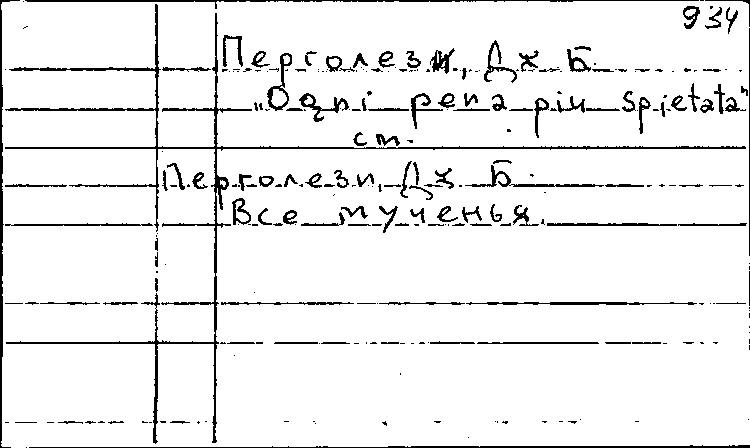 934
Перголези, Дж Б.
„Ogni pena piu spietata"
см.
Перголези, Дж Б.
Все мученья.